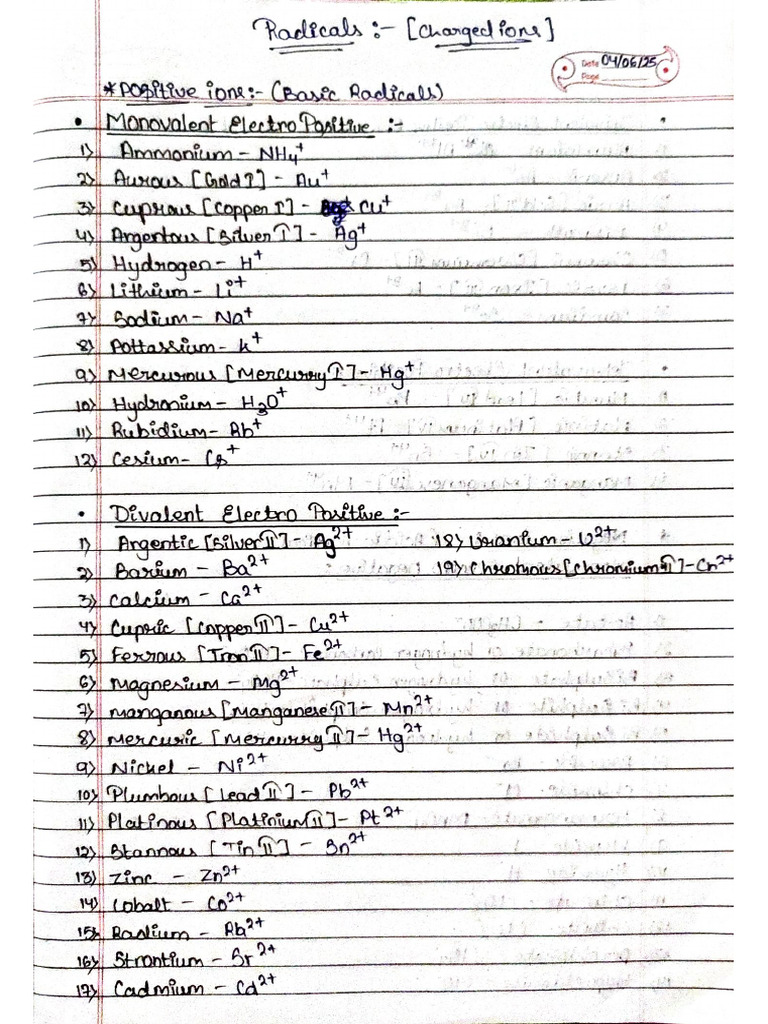 Radicals :- [Charged ions]
Date 04/06/25
Page
* Positive ions:- (Basic Radicals)
• Monovalent Electro Positive :-
1) Ammonium - NH4+
2) Aurous [Gold I] - Au+
3) Cuprous [Copper I] - Cu+
4) Argentous [Silver I] - Ag+
5) Hydrogen - H+
6) Lithium - Li+
7) Sodium - Na+
8) Pottassium - K+
9) Mercurous [Mercurry I] - Hg+
10) Hydronium - H3O+
11) Rubidium - Rb+
12) Cesium - Cs+
• Divalent Electro Positive :-
1) Argentic [Silver II] - Ag2+ 18) Uranium - U2+
2) Barium - Ba2+ 19) Chromous [Chromium II] - Cr2+
3) Calcium - Ca2+
4) Cupric [Copper II] - Cu2+
5) Ferrous [Iron II] - Fe2+
6) Magnesium - Mg2+
7) Manganous [Manganese II] - Mn2+
8) Mercuric [Mercurry II] - Hg2+
9) Nickel - Ni2+
10) Plumbous [Lead II] - Pb2+
11) Platinous [Platinium II] - Pt2+
12) Stannous [Tin II] - Sn2+
13) Zinc - Zn2+
14) Cobalt - Co2+
15) Radium - Rb2+
16) Strontium - Sr2+
17) Cadmium - Cd2+